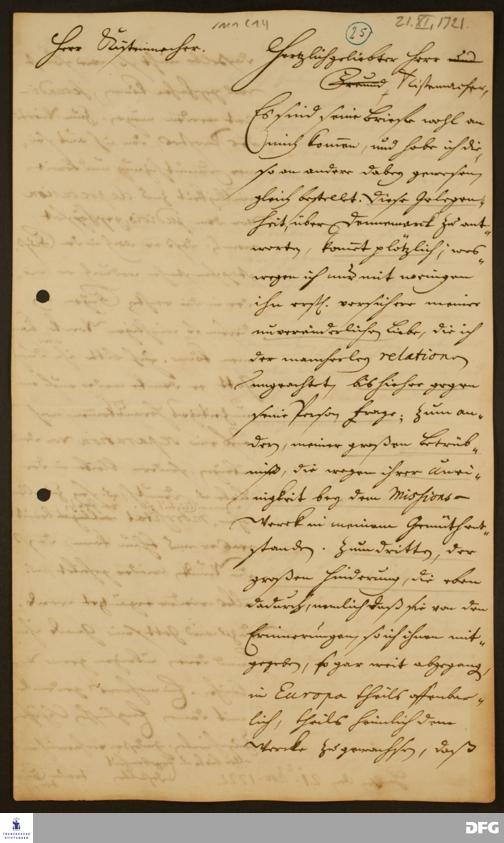 1MA C 14
25
21. XI, 1721.
Herr Kistenmacher.
Hertzlichgeliebter Herr und
Freund Kistenmacher,
Es sind seine Briefe wohl an
mich kommen, und habe ich die,
so an andere dabey gewesen,
gleich bestellet. Diese Gelegen-
heit, über Dennemarck zu ant-
worten, kommet plötzlich; wes-
wegen ich nur mit wenigen
ihn erstl. versichere meiner
unveränderlichen Liebe, die ich
der mancherley relationen
ungeachtet, bishieher gegen
seine Person trage; zum an-
dern, meiner großen Betrüb-
niß, die wegen ihrer Unei-
nigkeit bey dem Missions-
Werck in meinem Gemüth ent-
standen. Zum dritten, der
großen Hinderung, die eben
dadurch, nemlich daß sie von den
Erinnerungen, so ich ihnen mit-
gegeben, so gar weit abgegangen,
in Europa theils offenbar-
lich, theils heimlich dem
Wercke zugewachsen, daß
FRANCKESCHE STIFTUNGEN
DFG